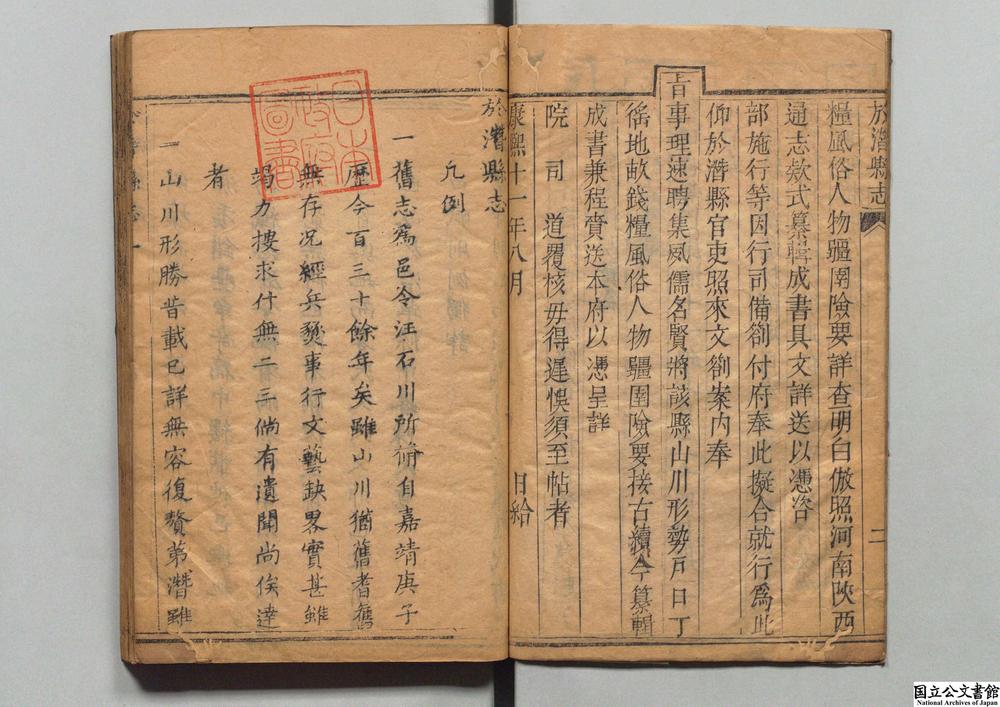 於潛縣志 二
糧風俗人物疆圉險要詳查明白倣照河南陝西
通志款式纂輯成書具文詳送以憑咨
部施行等因行司備劄付府奉此擬合就行爲此
仰於潛縣官吏照來文劄案内奉
旨事理速聘集風儒名賢將該縣山川形勢戶口丁
徭地畝錢糧風俗人物疆圉險要接古續今纂輯
成書兼程賫送本府以憑呈詳
院司道覆核毋得遲悞須至帖者
康熙十一年八月 日給
於潛縣志
凡例
一舊志爲邑令汪石川所脩自嘉靖庚子
歷今百三十餘年矣雖山川猶舊耆舊
無存况經兵燹事行文藝缺畧實甚雖
竭力搜求什無二三倘有遺聞尚俟達
者
一山川形勝昔載已詳無容復贅第潛雖
日本政府圖書
国立公文書館
National Archives of Japan